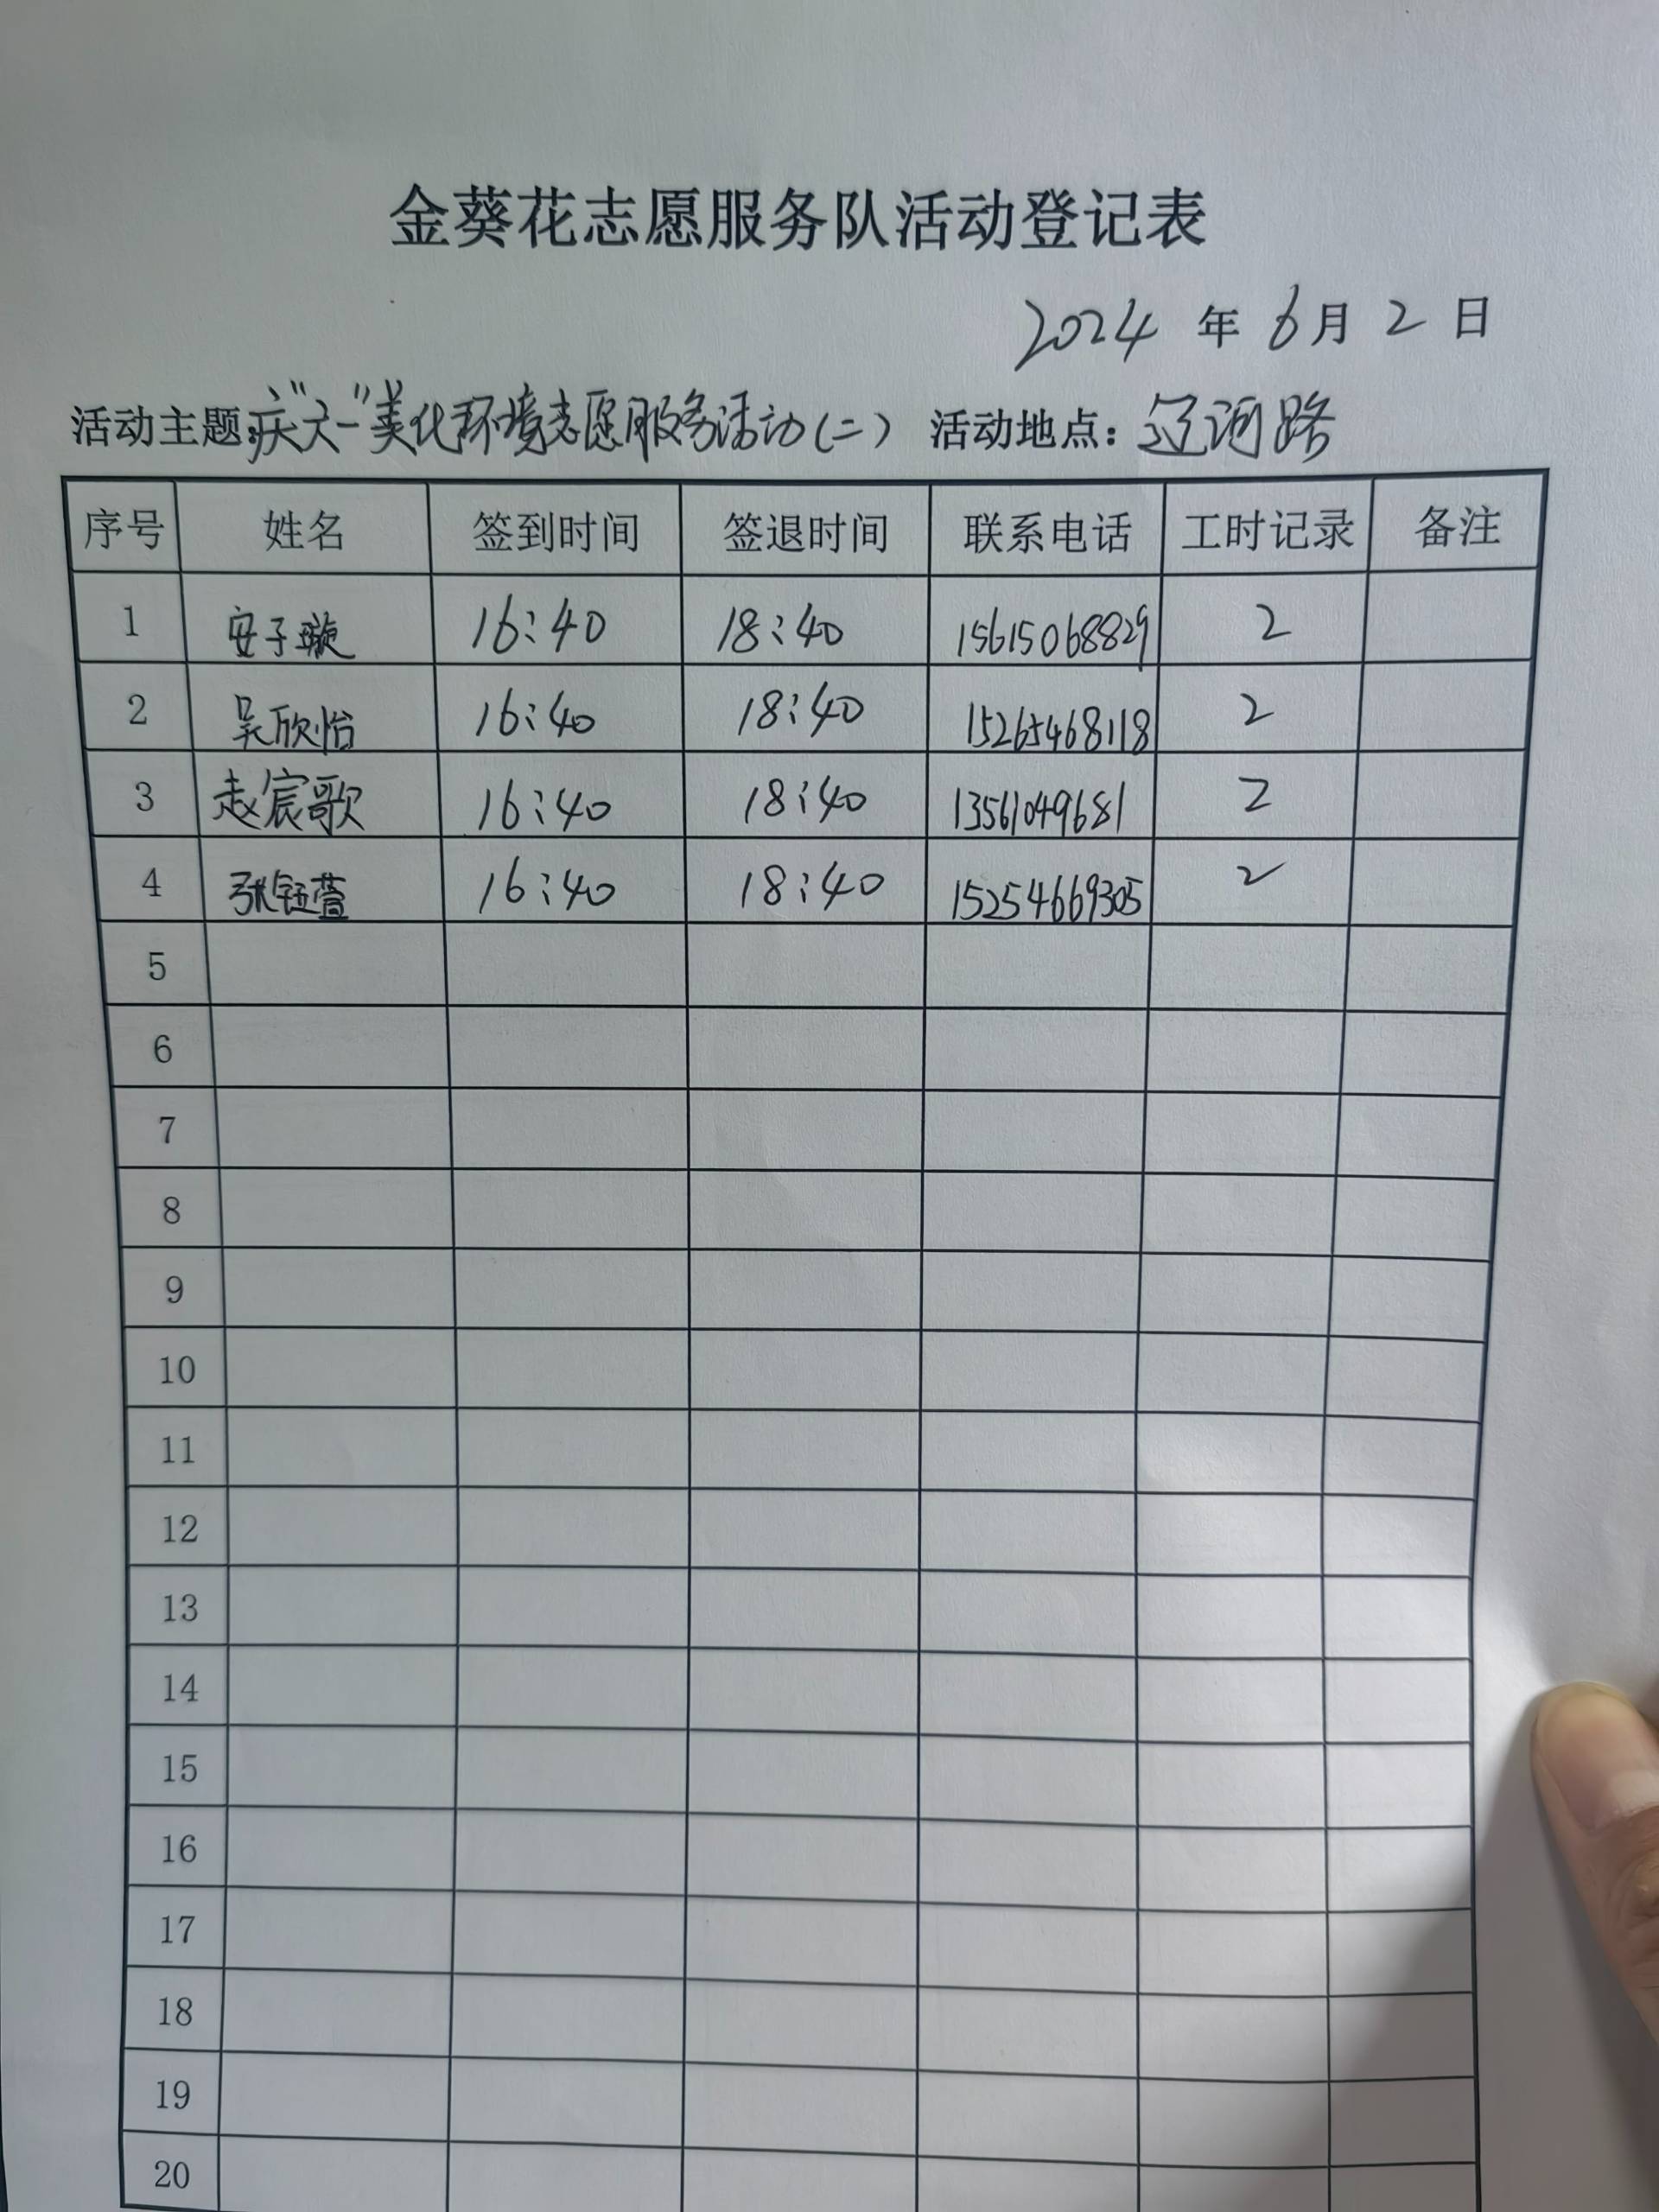 金葵花志愿服务队活动登记表
2024 年 6 月 2 日
活动主题:庆"六一"美化环境志愿服务活动(二) 活动地点:辽河路
序号 姓名 签到时间 签退时间 联系电话 工时记录 备注
1 安子璇 16:40 18:40 15615068829 2
2 吴欣怡 16:40 18:40 15265468118 2
3 赵宸歌 16:40 18:40 13561049681 2
4 张钰萱 16:40 18:40 15254669305 2
5
6
7
8
9
10
11
12
13
14
15
16
17
18
19
20